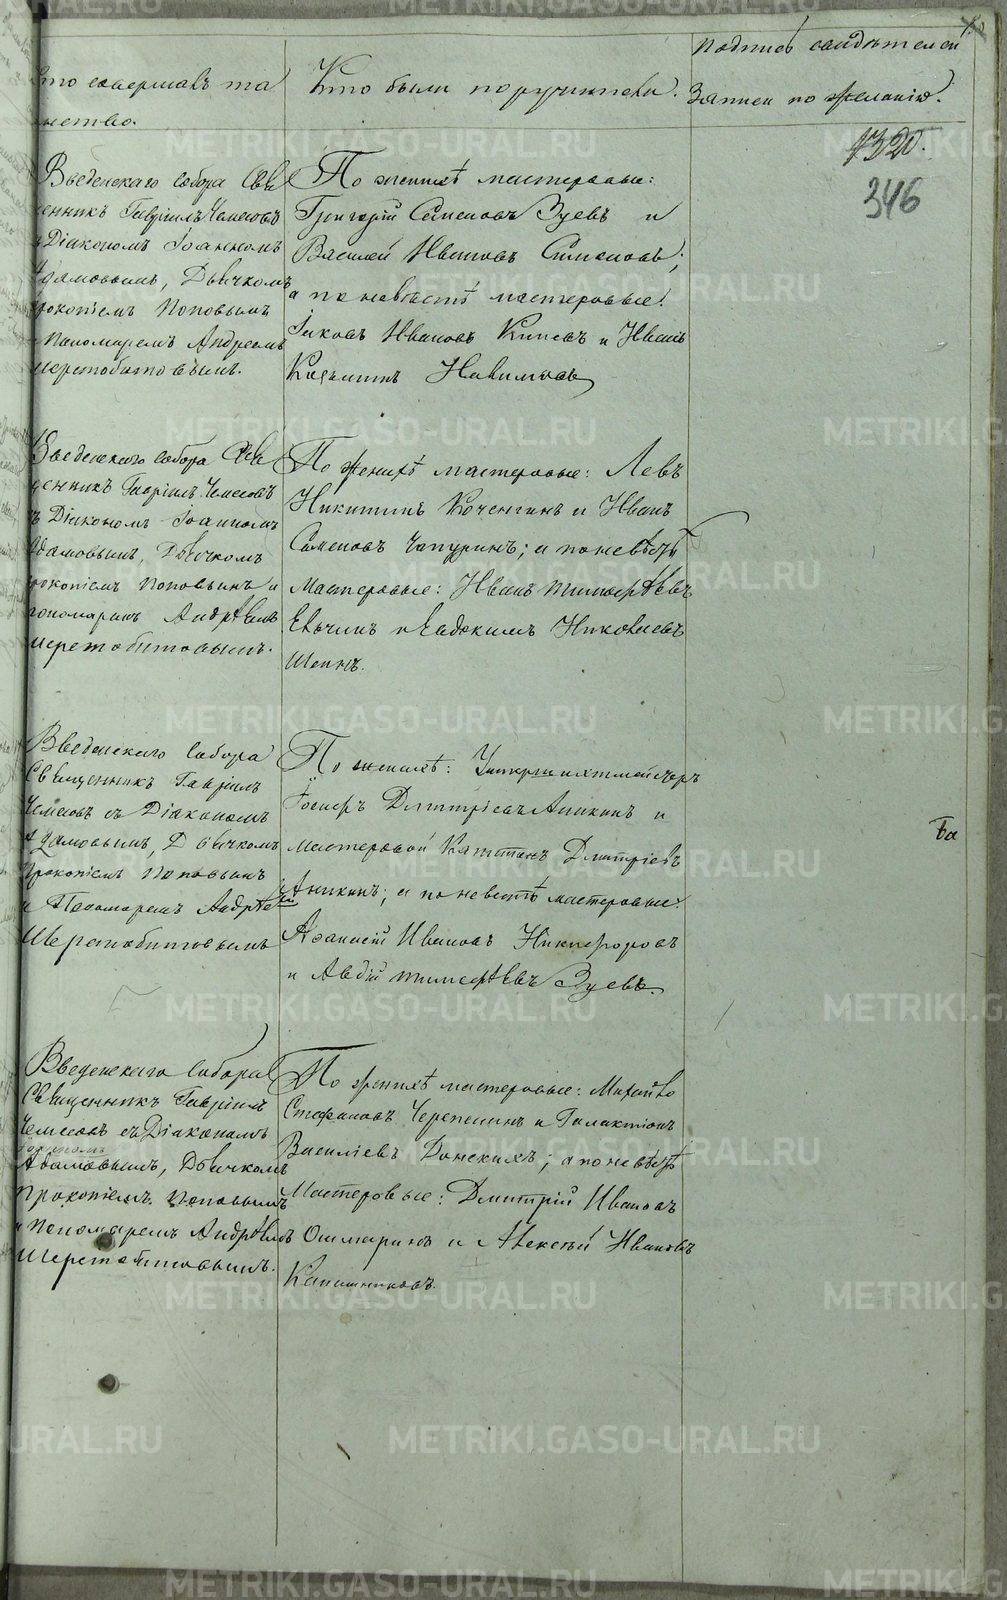 Кто совершалъ та
инство.
Кто были поручители.
Подпись свидѣтелей
Записи по желанію.
1320.
346
Введенскаго собора Свя
щенникъ Гавріилъ Чемесовъ
съ Діакономъ Іоанномъ
Адамовымъ, Дьячкомъ
Прокопіемъ Поповымъ
и Пономаремъ Андреемъ
По женихѣ мастеровые:
Григорій Семеновъ Зуевъ и
Василей Ивановъ Симеоновъ;
а по невѣстѣ мастеровые:
Іаковъ Ивановъ и Иванъ
Введенскаго собора Свя
щенникъ Гавріилъ Чемесовъ
съ Діакономъ Іоанномъ
Адамовымъ, Дьячкомъ
Прокопіемъ Поповымъ и
пономаремъ Андрѣемъ
Шерстобитовымъ.
По женихѣ мастеровые: Левъ
Никитинъ Коченгинъ и Иванъ
Симеоновъ Чапуринъ; а по невѣстѣ
мастеровые: Иванъ Тимофѣевъ
и Евдокимъ Николаевъ
Шеинъ.
Введенскаго собора
Священникъ Гавріилъ
Чемесовъ съ Діакономъ
Адамовымъ, Дьячкомъ
Прокопіемъ Поповымъ
и Пономаремъ Андрѣемъ
Шерстобитовымъ
По женихѣ: Унтершихтмейстеръ
Іосифъ Дмитріевъ Аникинъ и
мастеровой Капитонъ Дмитріевъ
Аникинъ; а по невѣстѣ мастеровые:
Аѳанасій Ивановъ Никифоровъ
и Авдій Тимофѣевъ Зуевъ.
Введенскаго собора
Священникъ Гавріилъ
Чемесовъ съ Діакономъ
Адамовымъ, Дьячкомъ
Прокопіемъ Поповымъ
и Пономаремъ Андрѣемъ
Шерстобитовымъ.
По женихѣ мастеровые: Михайло
Стефановъ Черепенинъ и Галактіонъ
Василіевъ Донскихъ; а по невѣстѣ
мастеровые: Дмитрій Ивановъ
Ошмаринъ и Алексѣй Ивановъ
Калашниковъ.
METRIKI.GASO-URAL.RU